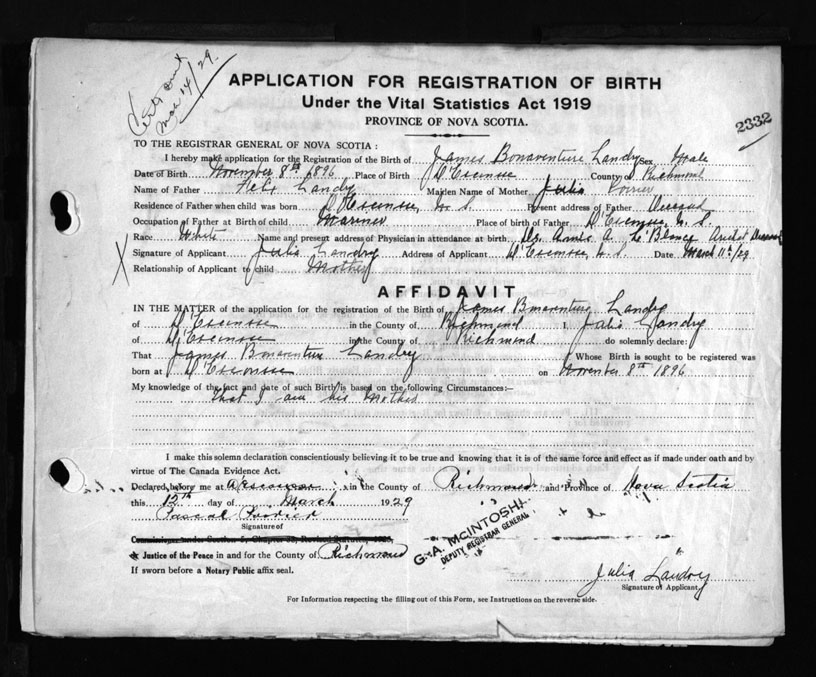 Certf sent
Mar 14/29
APPLICATION FOR REGISTRATION OF BIRTH
Under the Vital Statistics Act 1919
PROVINCE OF NOVA SCOTIA.
2332
TO THE REGISTRAR GENERAL OF NOVA SCOTIA:
I hereby make application for the Registration of the Birth of James Bonaventure Landry Sex Male
Date of Birth November 8th 1896 Place of Birth D'Escousse County of Richmond
Name of Father Landry Maiden Name of Mother Julia Poirier
Residence of Father when child was born D'Escousse, N.S. Present address of Father Deceased
Occupation of Father at Birth of child Mariner Place of birth of Father D'Escousse, N.S.
Race White Name and present address of Physician in attendance at birth Dr. A. LeBlanc Arichat Deceased
X Signature of Applicant Julia Landry Address of Applicant D'Escousse, N.S. Date March 11th/29
Relationship of Applicant to child Mother
AFFIDAVIT
IN THE MATTER of the application for the registration of the Birth of James Bonaventure Landry
of D'Escousse in the County of Richmond I, Julia Landry
of D'Escousse in the County of Richmond do solemnly declare:
That James Bonaventure Landry Whose Birth is sought to be registered was
born at D'Escousse on November 8th 1896
My knowledge of the fact and date of such Birth is based on the following Circumstances:—
that I am his Mother
I make this solemn declaration conscientiously believing it to be true and knowing that it is of the same force and effect as if made under oath and by
virtue of The Canada Evidence Act.
Declared before me at in the County of Richmond and Province of Nova Scotia
this 12th day of March 1929
Pascal Poirier
Signature of
G. A. McINTOSH
DEPUTY REGISTRAR GENERAL
Justice of the Peace in and for the County of Richmond
If sworn before a Notary Public affix seal.
Julia Landry
Signature of Applicant
For Information respecting the filling out of this Form, see Instructions on the reverse side.